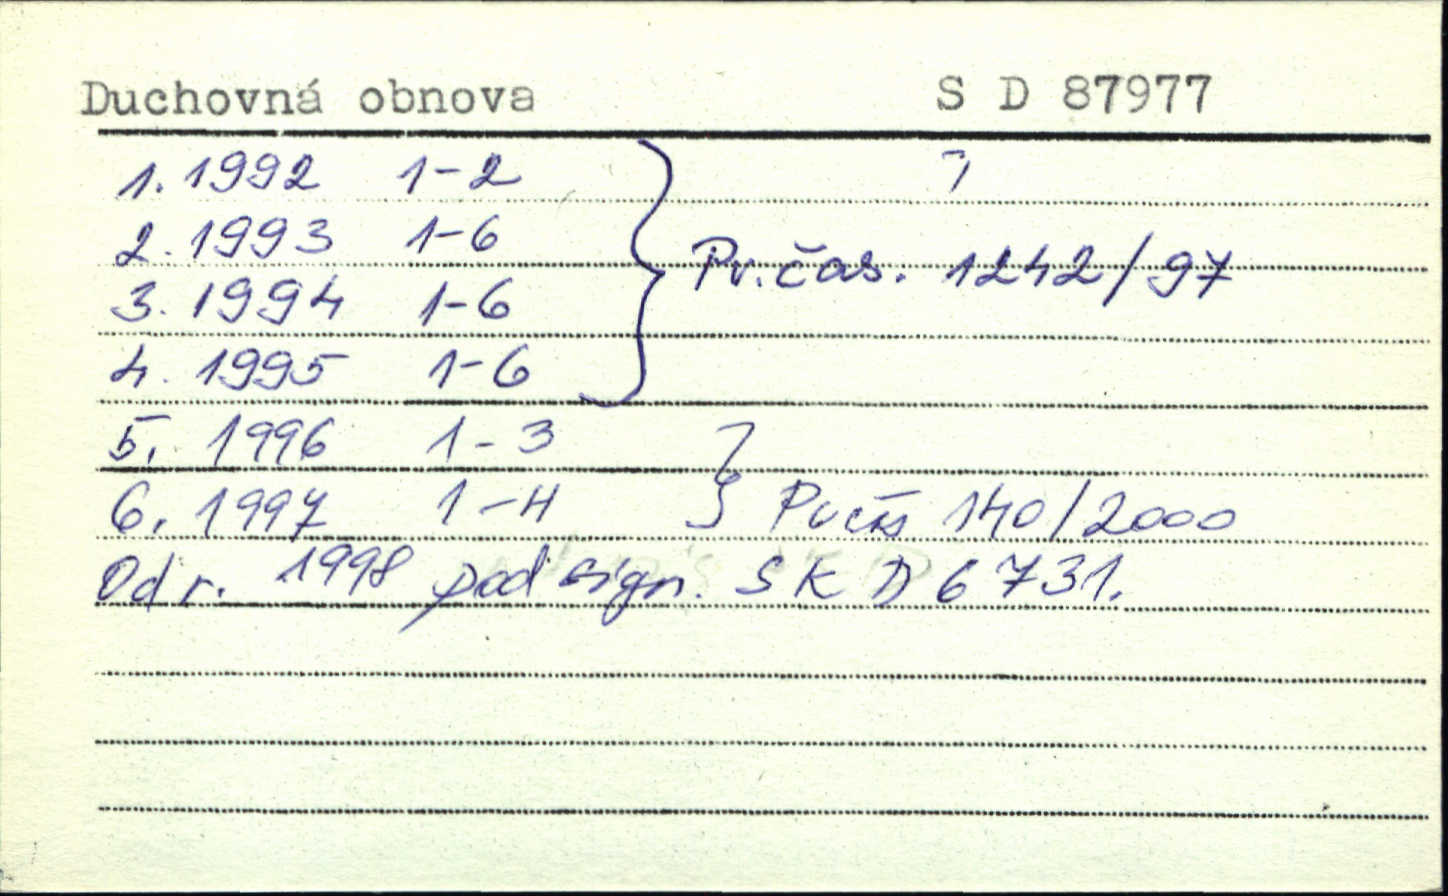 Duchovná obnova S D 87977
1. 1992 1-2
2. 1993 1-6
Pr. čas. 1242/97
3. 1994 1-6
4. 1995 1-6
5. 1996 1-3
6. 1997 1-4 Pr čas 140/2000
Od r. 1998 pod sign. S K D 6731.